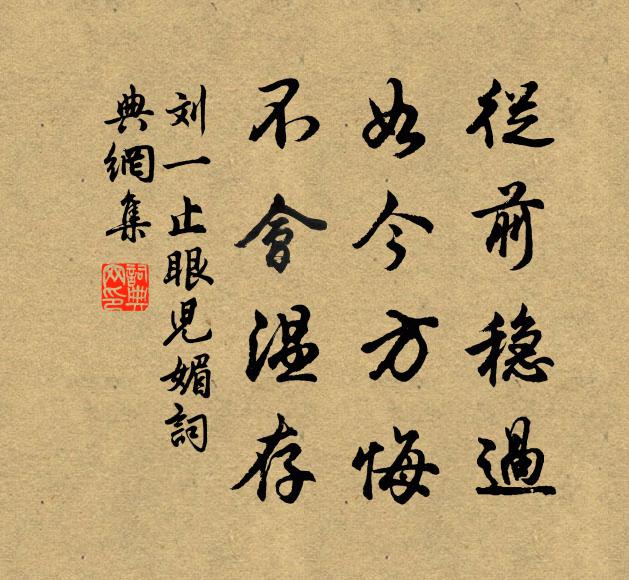 從前稳過
如今方悔
不會温存
刘一止眼児媚詞
典網集
詞典
网印